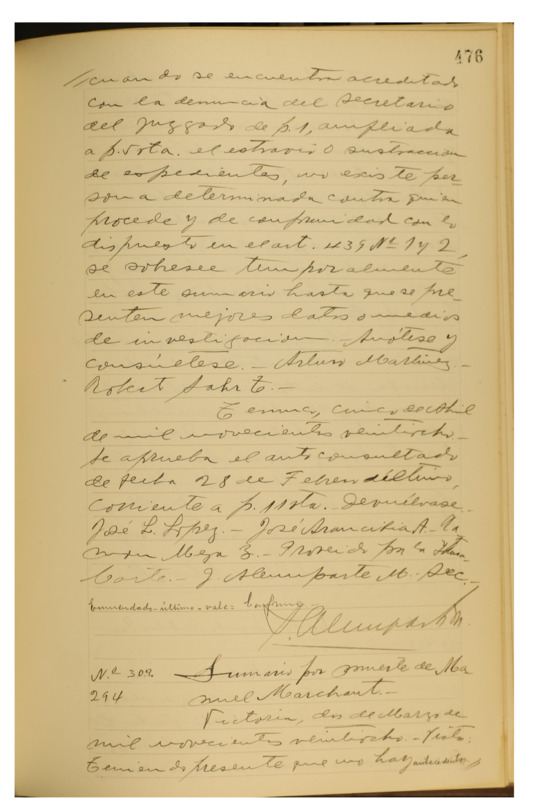 476
cuando se encuentra acreditado
con la denuncia del secretario
del juzgado de p. 1, ampliada
a p. 5 vta. el estravio o sustraccion
de espedientes, no existe per-
sona determinada contra quien
procede y de conformidad con lo
dispuesto en el art. 439 Nº 1 y 2,
se sobresee temporalmente
en este sumario hasta que se pre-
senten mejores datos o medios
de investigacion. - Anótese y
consúltese. - Arturo Martinez. -
Robert Sahr E. -
Temuco, cinco de Abril
de mil novecientos veintiocho. -
Se aprueba el auto consultado
de fecha 28 de Febrero último,
corriente a p. 11 vta. Devuélvase.
José L. Lopez. - José Arancibia A. - Ra
mon Meza 3. - Proveido por la Iltma.
Corte. - J. Alemparte M. - Sec. -
Enmendado - último - vale = Conforme
J. Alemparte M.
N.º 309. Sumario por muerte de Ma
294 nuel Marchant. -
Victoria, dos de Marzo de
mil novecientos veintiocho. - Vistos:
Teniendo presente que no hay antecedentes